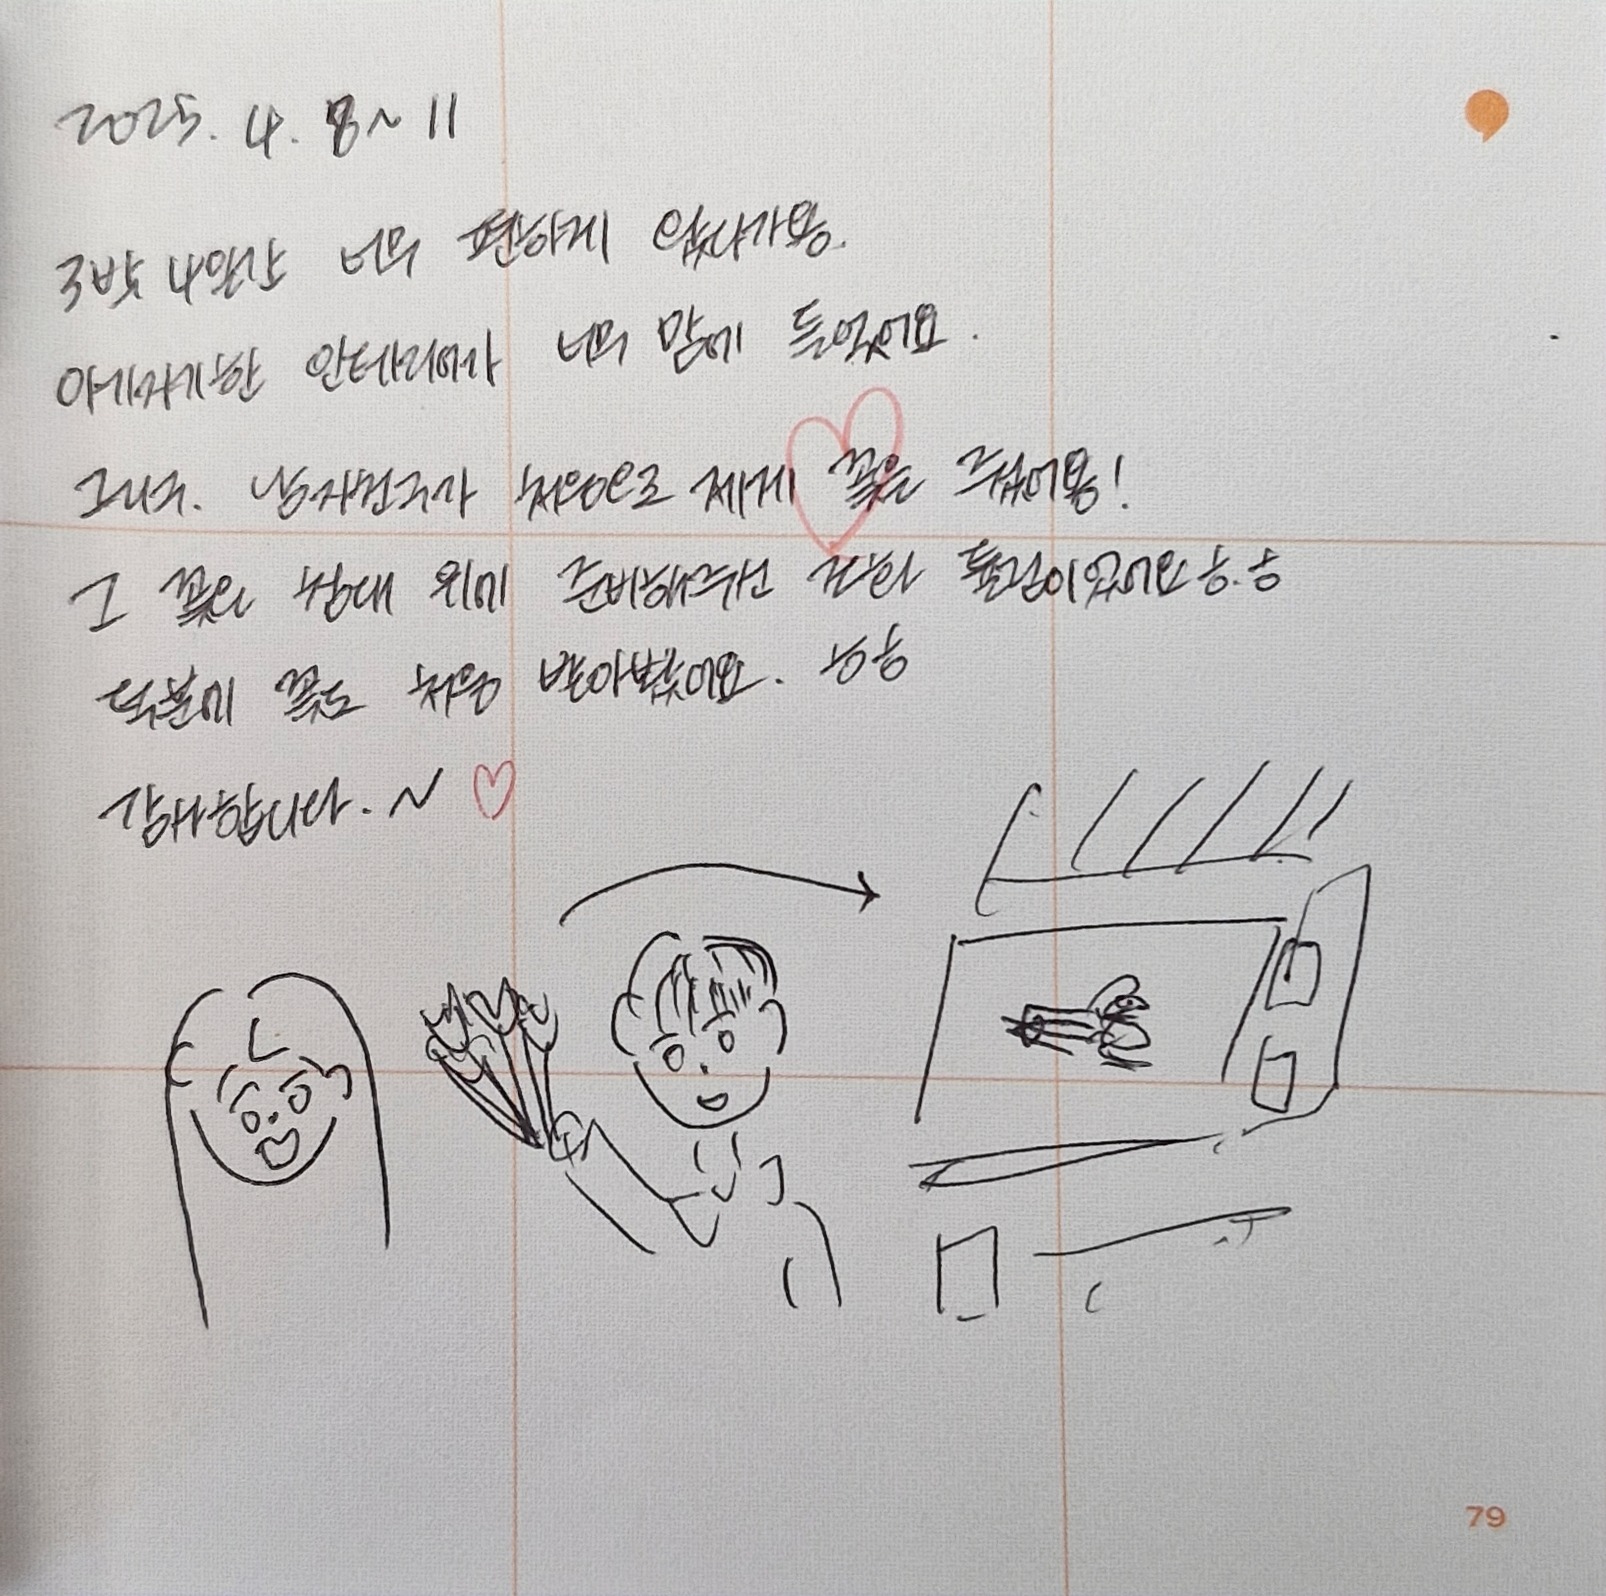 2025. 4. 8~11
3박 4일간 너무 편하게 있다가용.
아기자기한 인테리어가 너무 맘에 들었어요.
그리구. 남자친구가 처음으로 제게 꽃을 주었어용!
그 꽃은 침대 위에 준비해주신 튤립이었어요ㅎ.ㅎ
덕분에 꽃도 처음 받아봤어요. ㅎㅎ
감사합니다.~
79